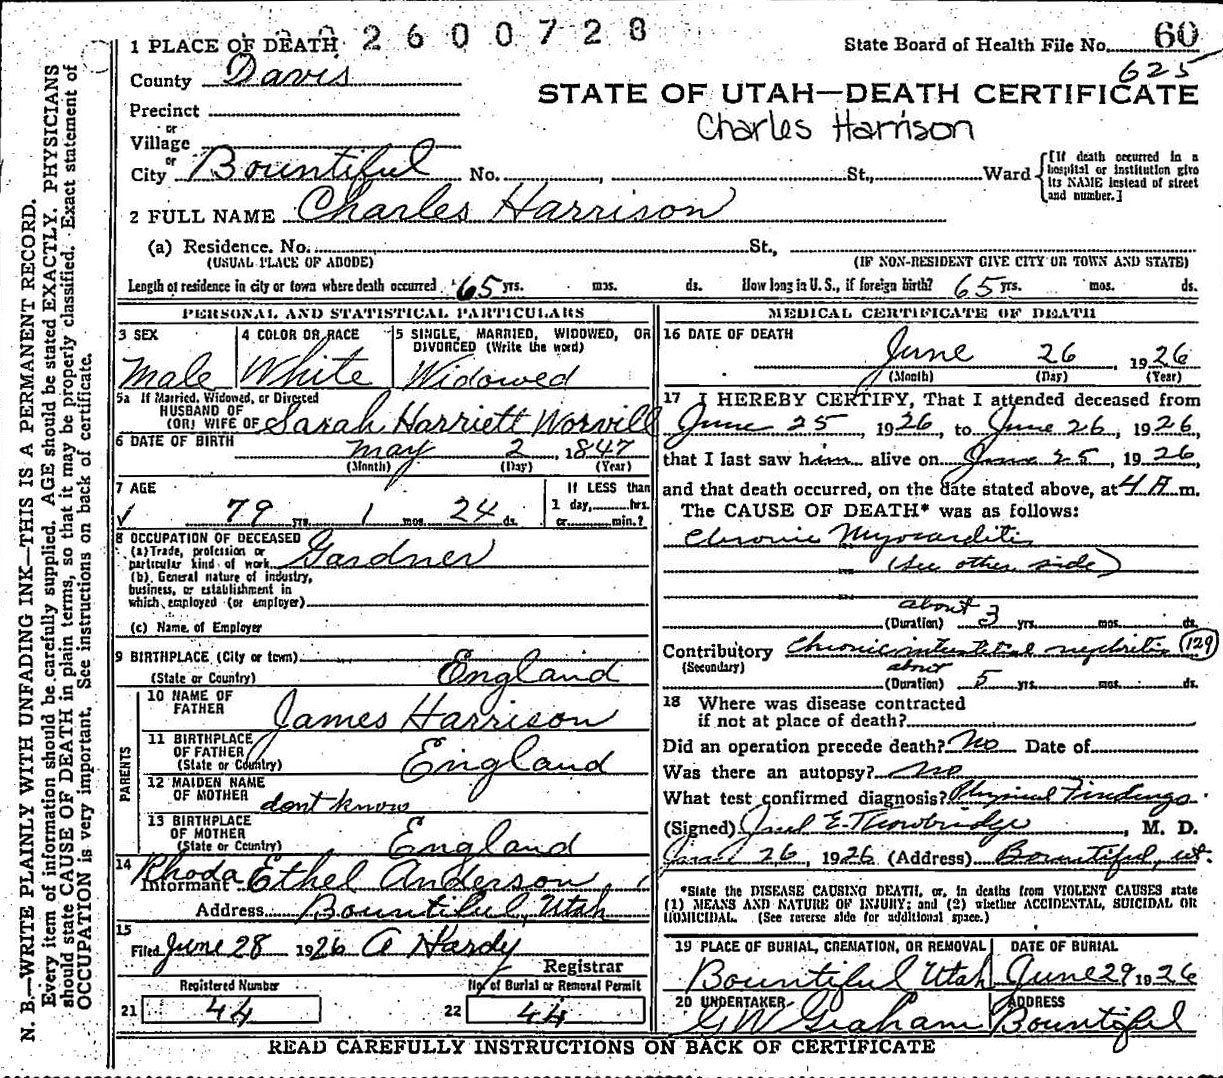 2600728
State Board of Health File No. 60
625
STATE OF UTAH—DEATH CERTIFICATE
Charles Harrison
1 PLACE OF DEATH
County Davis
Precinct
or
Village
or
City Bountiful No. , St., Ward
[If death occurred in a hospital or institution give its NAME instead of street and number.]
2 FULL NAME Charles Harrison
(a) Residence. No. St.,
(USUAL PLACE OF ABODE) (IF NON-RESIDENT GIVE CITY OR TOWN AND STATE)
Length of residence in city or town where death occurred 65 yrs. mos. ds. How long in U. S., if foreign birth? 65 yrs. mos. ds.
PERSONAL AND STATISTICAL PARTICULARS
3 SEX
Male
4 COLOR OR RACE
White
5 SINGLE, MARRIED, WIDOWED, OR
DIVORCED (Write the word)
Widowed
5a If Married, Widowed, or Divorced
HUSBAND OF
(OR) WIFE OF Sarah Harriett Worvill
6 DATE OF BIRTH
May 2, 1847
(Month) (Day) (Year)
7 AGE
79 yrs. 1 mos. 24 ds.
If LESS than
1 day, hrs.
or min.?
8 OCCUPATION OF DECEASED
(a) Trade, profession or
particular kind of work Gardner
(b) General nature of industry,
business, or establishment in
which employed (or employer)
(c) Name of Employer
9 BIRTHPLACE (City or town)
(State or Country) England
PARENTS
10 NAME OF
FATHER James Harrison
11 BIRTHPLACE
OF FATHER
(State or Country) England
12 MAIDEN NAME
OF MOTHER dont know
13 BIRTHPLACE
OF MOTHER
(State or Country) England
14
Informant Rhoda Ethel Anderson
Address Bountiful, Utah
15
Filed June 28 1926 A Hardy
Registrar
Registered Number
21 44
No. of Burial or Removal Permit
22 44
MEDICAL CERTIFICATE OF DEATH
16 DATE OF DEATH
June 26 1926
(Month) (Day) (Year)
17 I HEREBY CERTIFY, That I attended deceased from
June 25, 1926, to June 26, 1926,
that I last saw him alive on June 25, 1926,
and that death occurred, on the date stated above, at 4 A m.
The CAUSE OF DEATH* was as follows:
Chronic Myocarditis
(See other side)
about
(Duration) 3 yrs. mos. ds.
Contributory Chronic interstitial nephritis 129
(Secondary) about
(Duration) 5 yrs. mos. ds.
18 Where was disease contracted
if not at place of death?
Did an operation precede death? No Date of
Was there an autopsy? no
What test confirmed diagnosis? Physical Findings
(Signed) E. Trowbridge, M. D.
June 26, 1926 (Address) Bountiful, ut.
*State the DISEASE CAUSING DEATH, or, in deaths from VIOLENT CAUSES state
(1) MEANS AND NATURE OF INJURY; and (2) whether ACCIDENTAL, SUICIDAL OR
HOMICIDAL. (See reverse side for additional space.)
19 PLACE OF BURIAL, CREMATION, OR REMOVAL
Bountiful Utah
DATE OF BURIAL
June 29 1926
20 UNDERTAKER
G W Graham
ADDRESS
Bountiful
READ CAREFULLY INSTRUCTIONS ON BACK OF CERTIFICATE
N. B.—WRITE PLAINLY WITH UNFADING INK—THIS IS A PERMANENT RECORD.
Every item of information should be carefully supplied. AGE should be stated EXACTLY. PHYSICIANS
should state CAUSE OF DEATH in plain terms, so that it may be properly classified. Exact statement of
OCCUPATION is very important. See instructions on back of certificate.